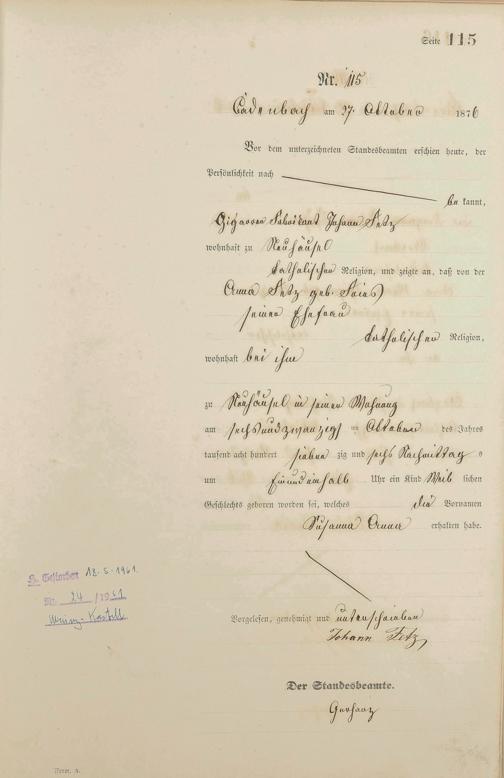 Seite 115
Nr. 115
Cadenbach am 27. Oktober 1876
Vor dem unterzeichneten Standesbeamten erschien heute, der
Persönlichkeit nach
bekannt,
Johann Fetz
wohnhaft zu Neuhäusel
katholischer Religion, und zeigte an, daß von der
Anna Fetz geb.
seiner Ehefrau
katholischer Religion,
wohnhaft bei ihm
zu Neuhäusel in seiner Wohnung
am sechsundzwanzigsten Oktober des Jahres
tausend acht hundert siebenzig und sechs Nachmittags
um Uhr ein Kind weiblichen
Geschlechts geboren worden sei, welches die Vornamen
Susanna Anna erhalten habe.
Vorgelesen, genehmigt und unterschrieben
Johann Fetz
Der Standesbeamte.
Gestorben 18.5.1961.
Nr. 24/1961